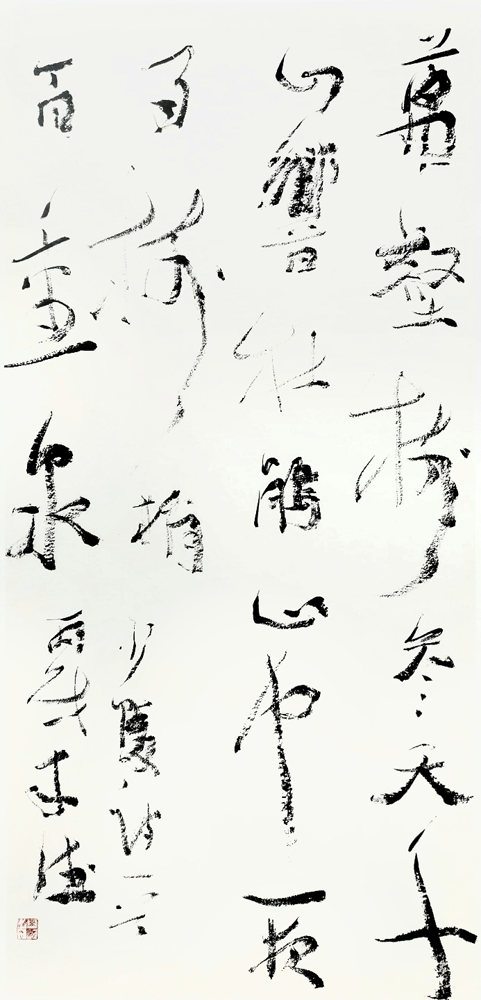 萬壑樹參天千
山響杜鵑山中一夜
雨樹梢
百重泉
少陵詩一首
丙戌